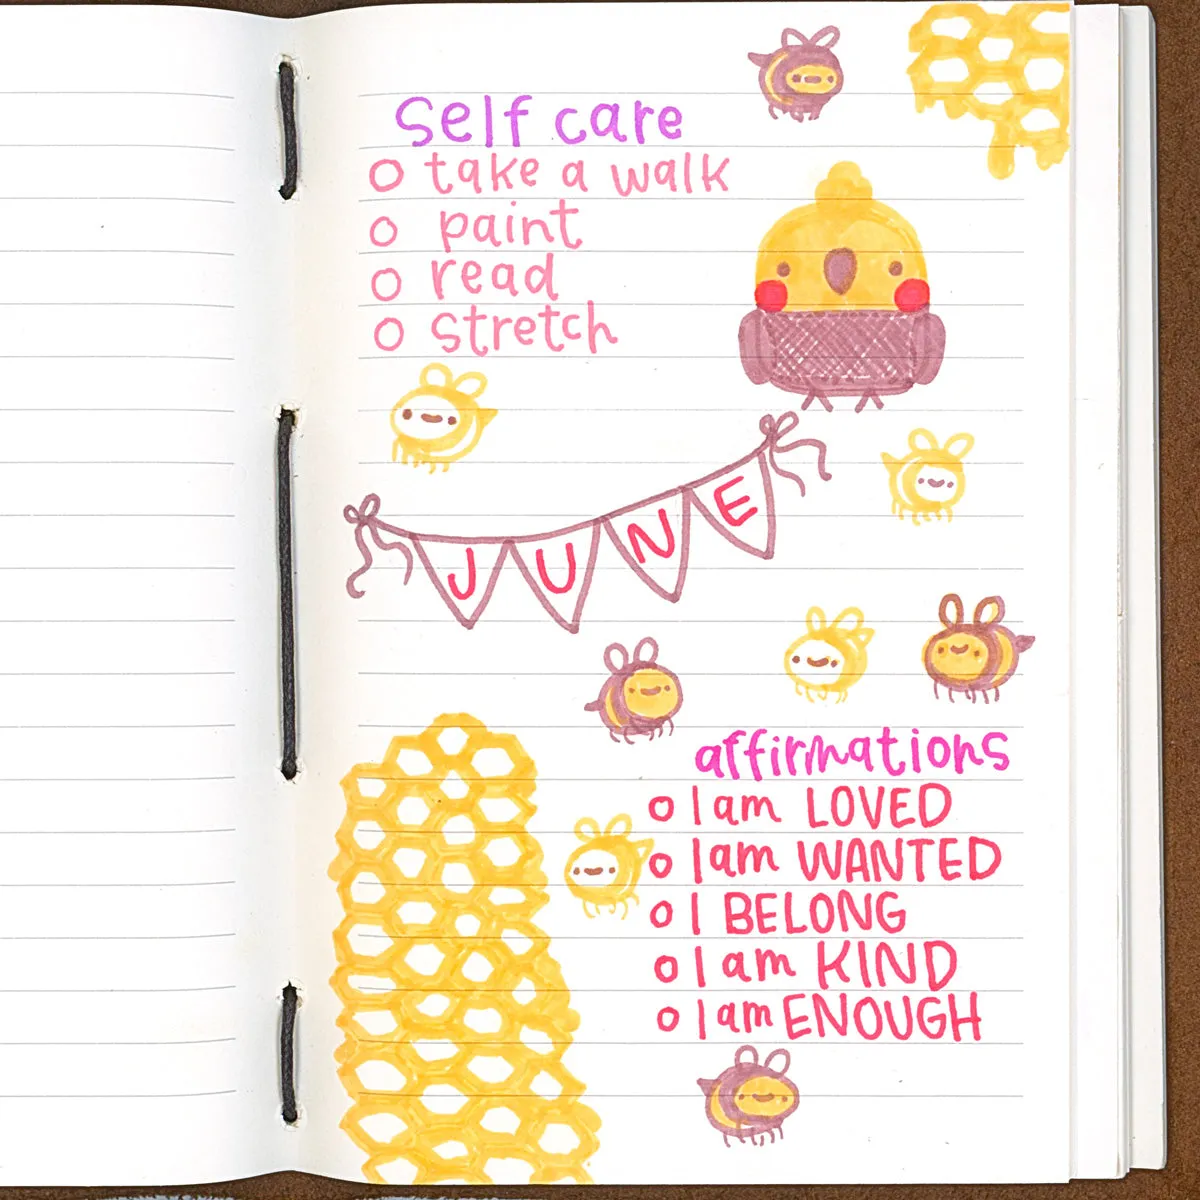 Self care
take a walk
paint
read
stretch
JUNE
affirmations
I am LOVED
I am WANTED
I BELONG
I am KIND
I am ENOUGH